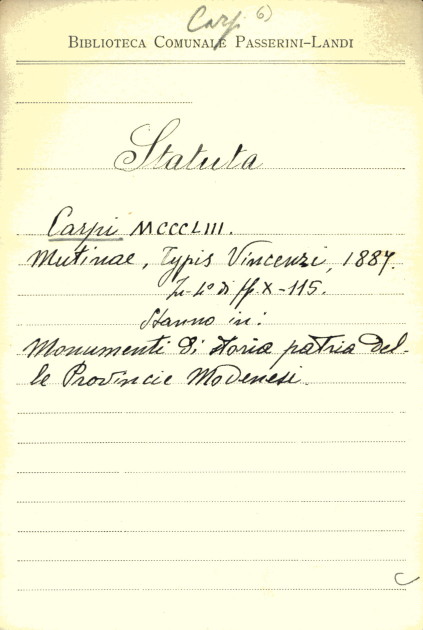 Carpi 6)
BIBLIOTECA COMUNALE PASSERINI-LANDI
Statuta
Carpi MCCCLIII.
Mutinae, Typis Vincenzi, 1887.
In-4° di ff. X-115.
Stanno in:
Monumenti di storia patria del-
le Provincie Modenesi.
C